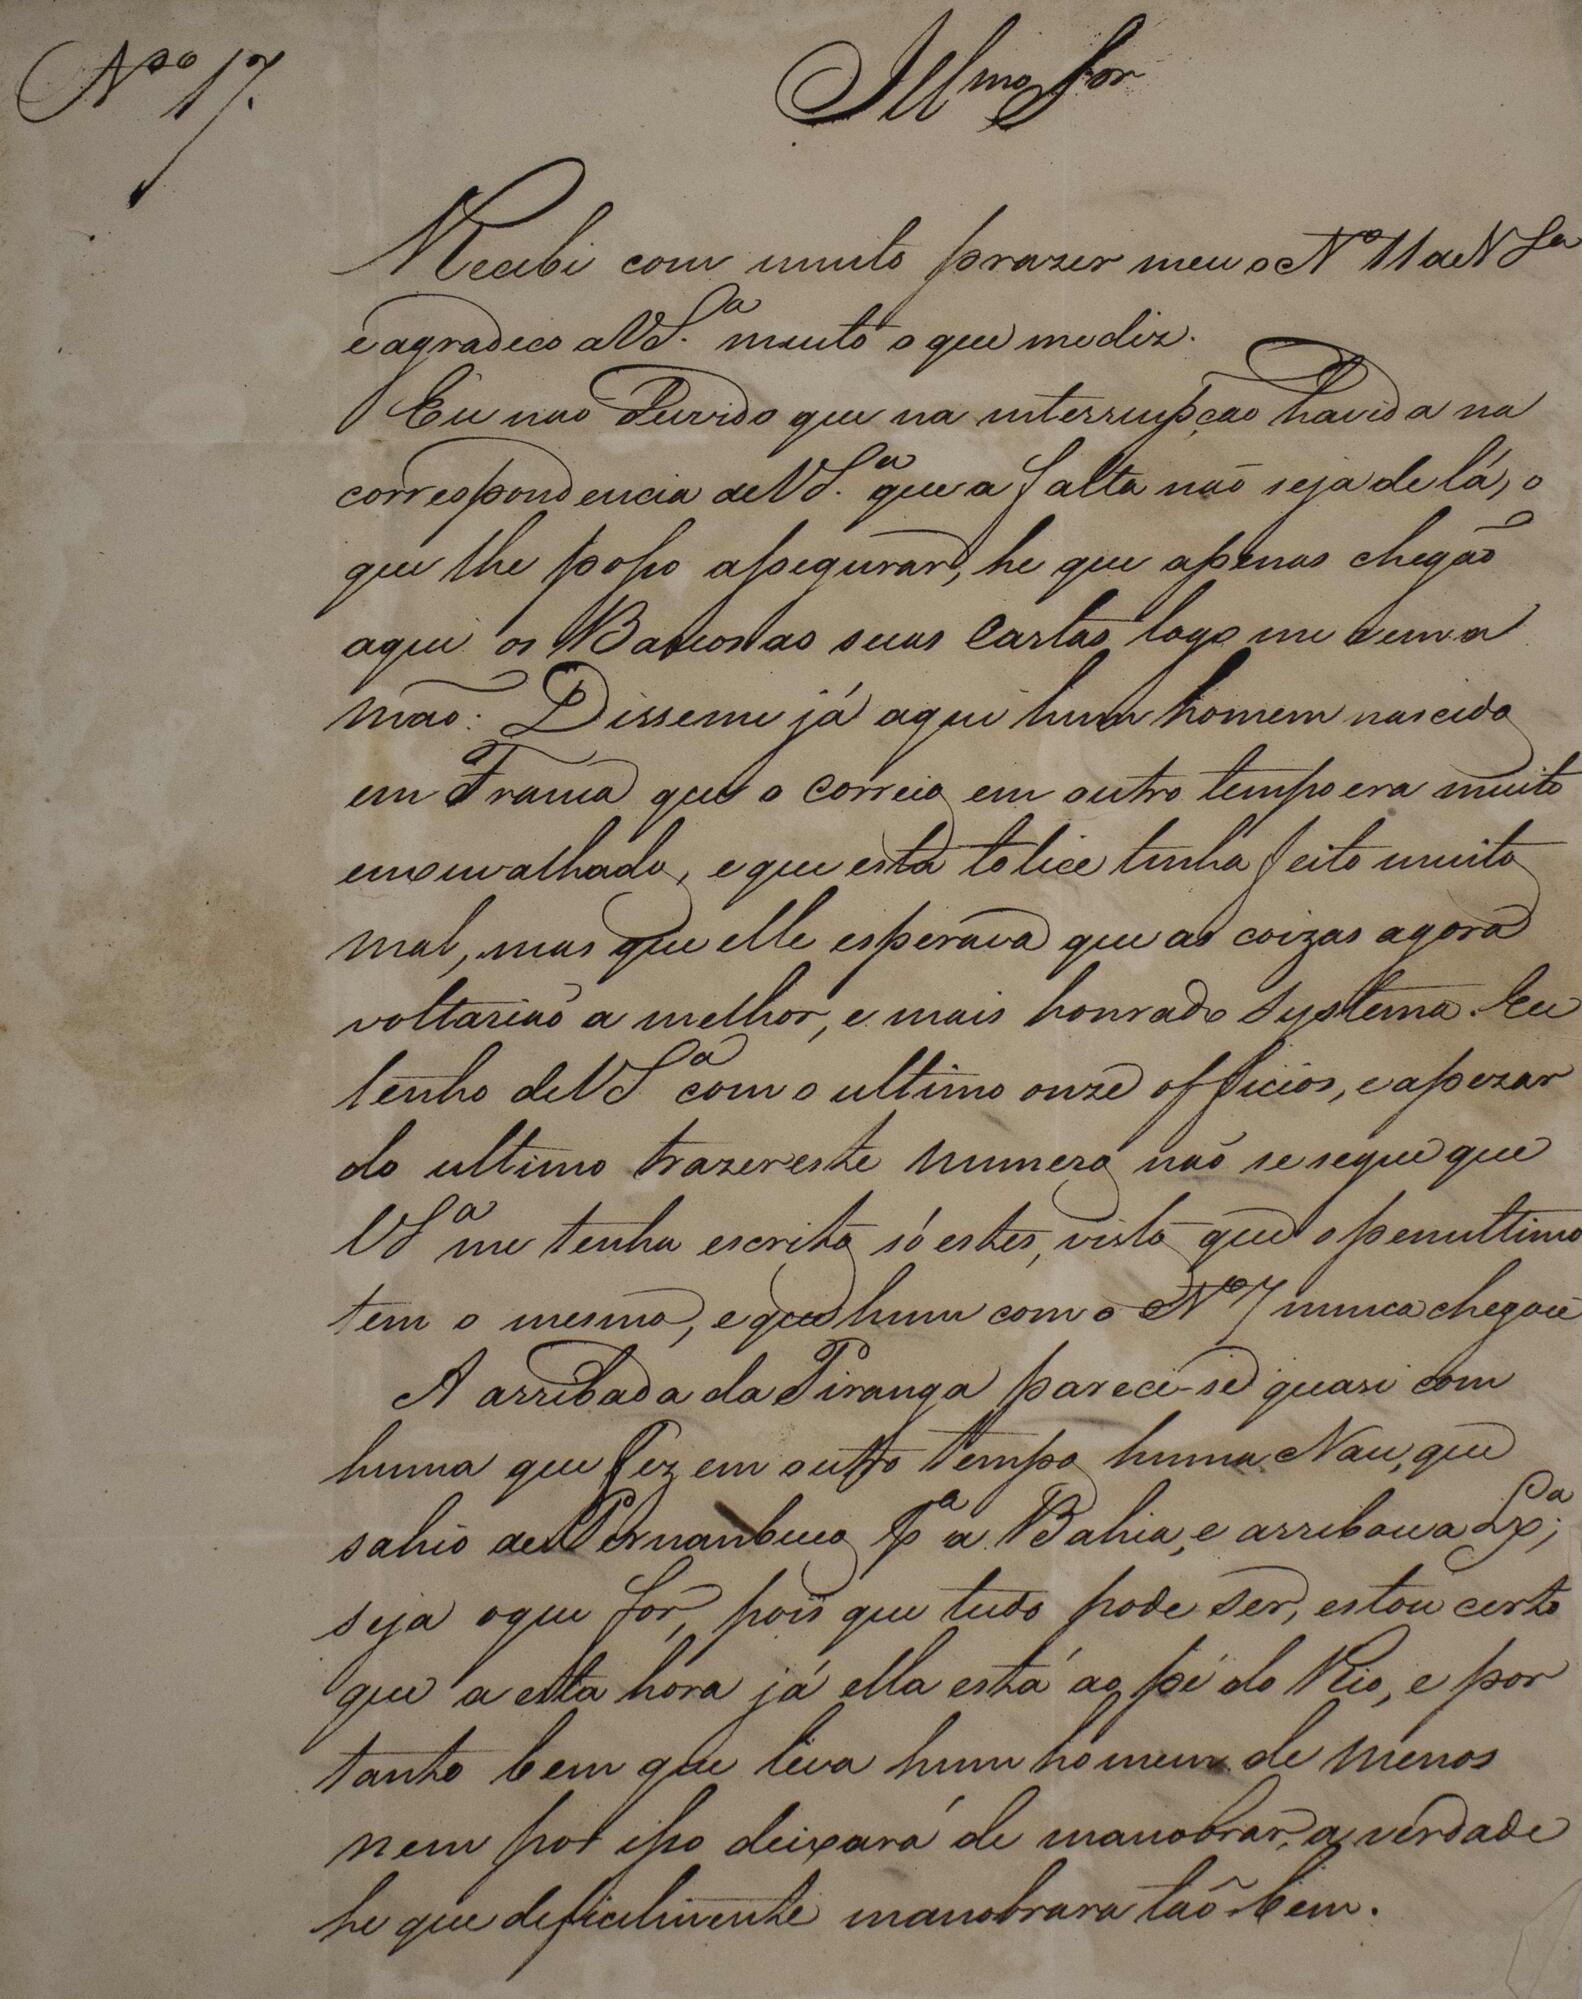 Nro 17.
Illmo Snr
Recebi com muito prazer meu o No 11 de V Sa
e agradeço a V S.a muito o que me diz.
Eu nao Duvido que na interrupção havida na
correspondencia de V S.a que a falta não seja de lá, o
que lhe posso assegurar, he que apenas chegão
aqui os Barcos as suas Cartas logo me vem a
mão: Disseme já aqui hum homem nascido
em França que o Correio em outro tempo era muito
enxovalhado, e que esta tolice tinha feito muito
mal, mas que elle esperava que as coizas agora
voltarião a melhor, e mais honrado Systema. Eu
tenho de V S.a com o ultimo onze officios, e apezar
do ultimo trazer este numero não se segue que
V S.a me tenha escrito só estes, visto que o penultimo
tem o mesmo, e que hum com o No 7 nunca chegou
A arribada da Piranga parece-se quasi com
huma que fez em outro tempo huma Nau, que
sahio de Pernambuco Pa a Bahia, e arribou a Lxa;
seja o que for, pois que tudo pode ser, estou certo
que a esta hora já ella está ao pé do Rio, e por
tanto bem que leva hum homem de menos
nem por isso deixará de manobrar, a verdade
he que deficilmente manobrara tão bem.